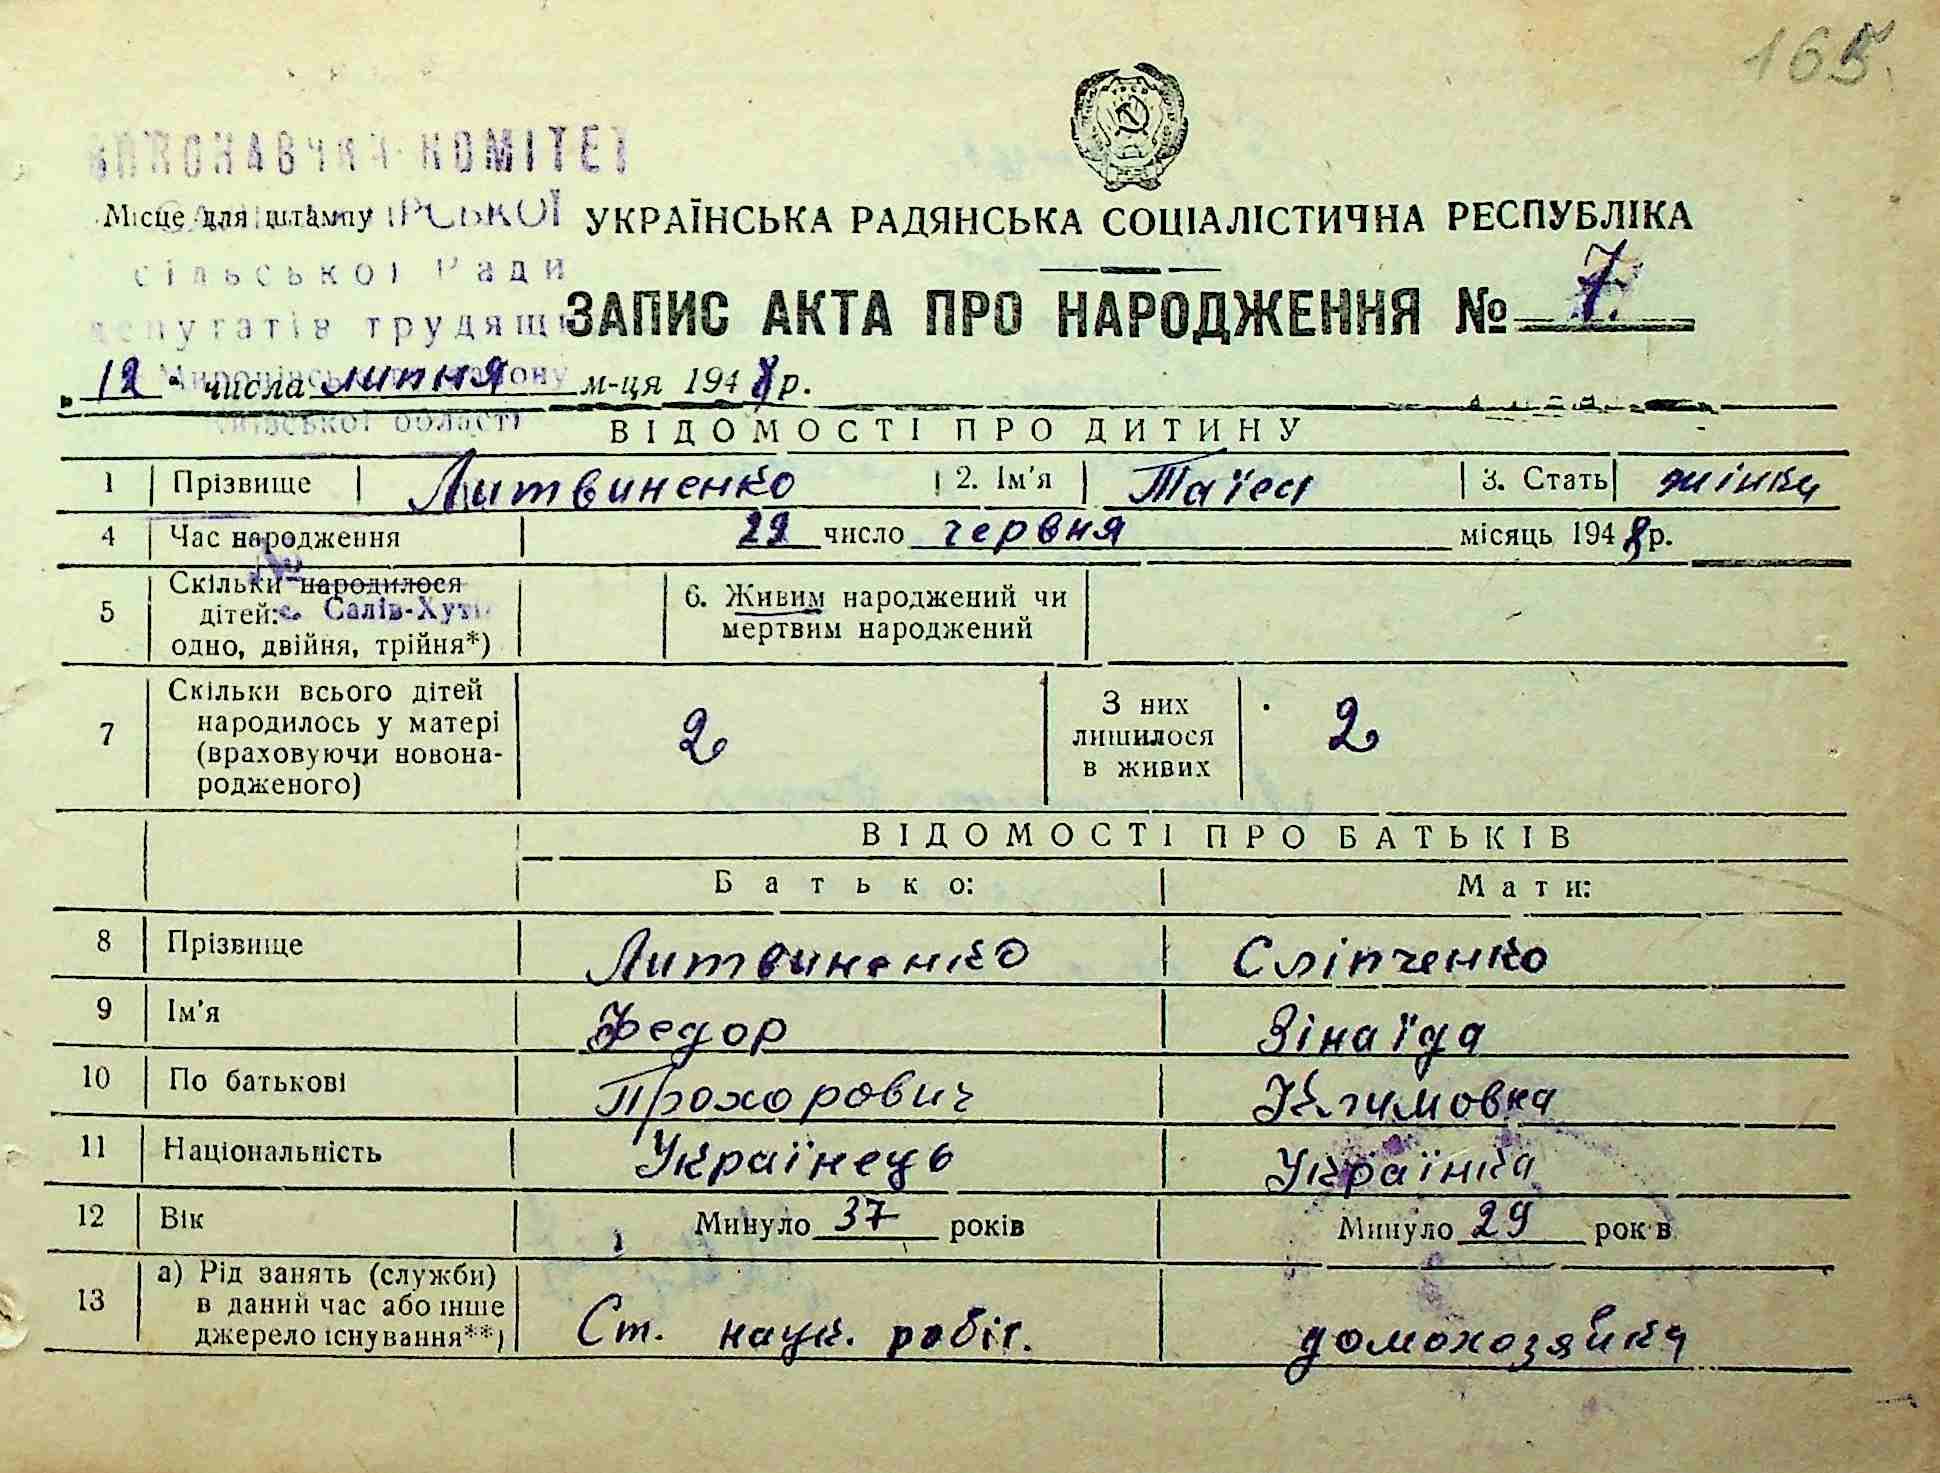 165.
КОМІТЕТ
Місце для штампу УКРАЇНСЬКА РАДЯНСЬКА СОЦІАЛІСТИЧНА РЕСПУБЛІКА
сільської Ради
депутатів трудящ
ЗАПИС АКТА ПРО НАРОДЖЕННЯ № 7
„ 12 " числа липня м-ця 1948 р.
області
ВІДОМОСТІ ПРО ДИТИНУ
1 Прізвище Литвиненко 2. Ім'я Таїса 3. Стать жінка
4 Час народження 22 число червня місяць 1948 р.
№
5 Скільки народилося дітей: одно, двійня, трійня*) 6. Живим народжений чи мертвим народжений
с. Салів-Хут
7 Скільки всього дітей народилось у матері (враховуючи новонародженого) 2 З них лишилося в живих 2
ВІДОМОСТІ ПРО БАТЬКІВ
Батько: Мати:
8 Прізвище Литвиненко Сліпченко
9 Ім'я Федор Зінаїда
10 По батькові Прохорович Климовна
11 Національність Українець Українка
12 Вік Минуло 37 років Минуло 29 років
13 а) Рід занять (служби) в даний час або інше джерело існування**) Ст. наук. робіт. домохозяйка